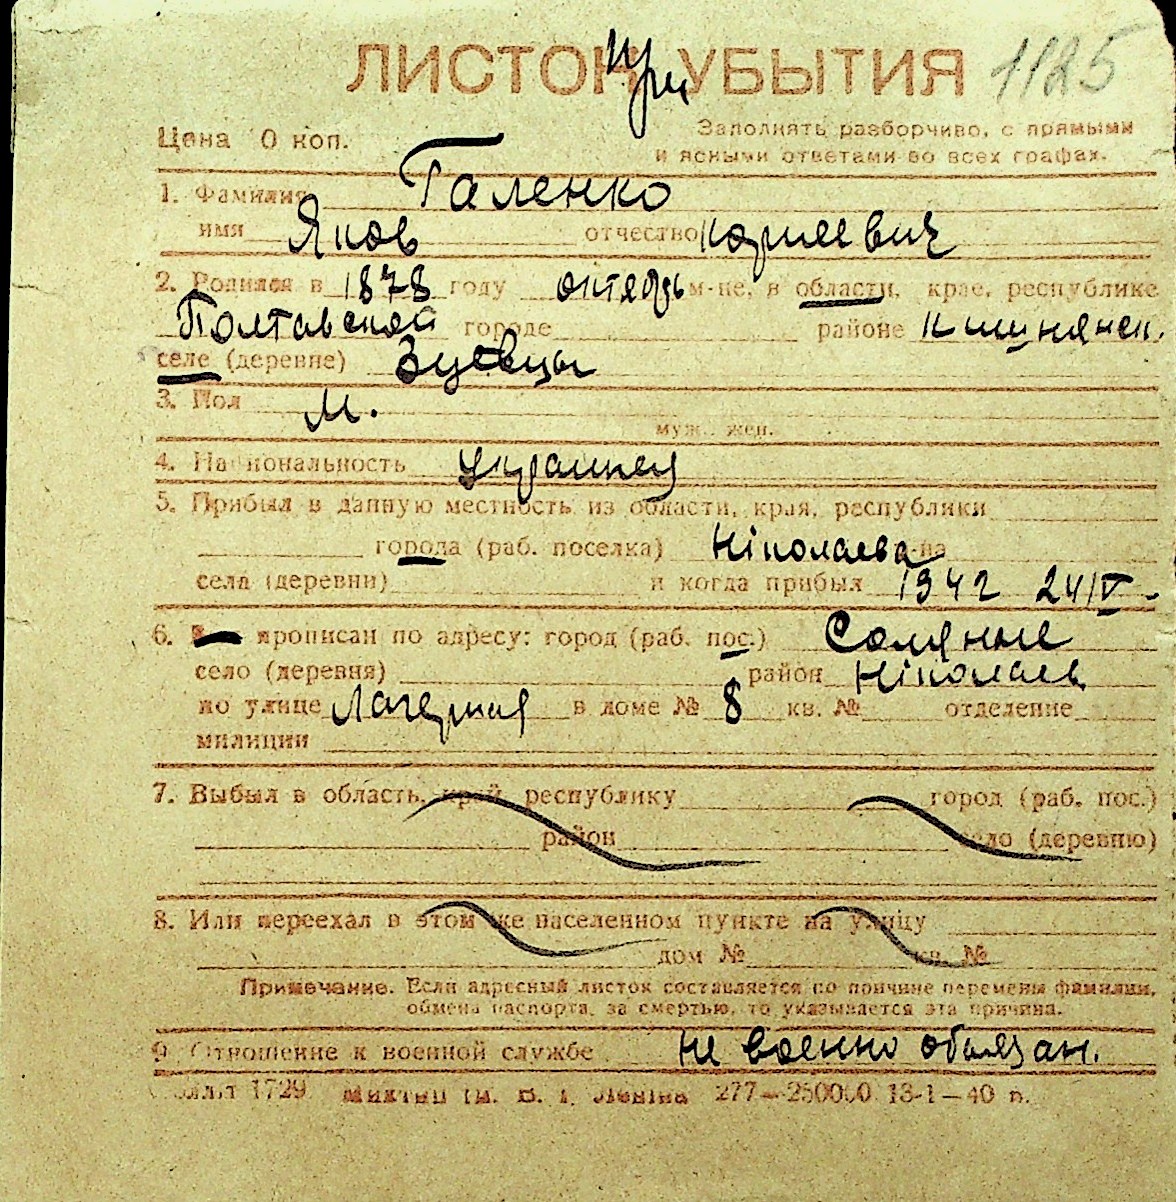 ЛИСТОК при УБЫТИЯ 1125
Цена 10 коп. Заполнять разборчиво, с прямыми
и ясными ответами во всех графах.
1. Фамилия Галенко
имя Яков отчество Корнеевич
2. Родился в 1878 году октябрь м-це, в области, крае, республике
Полтавской городе районе Кишинянск.
селе (деревне) Зуевцы
3. Пол м.
муж. жен.
4. Национальность украинец
5. Прибыл в данную местность из области, края, республики
города (раб. поселка) Ніколаева
села (деревни) и когда прибыл 1942 24/IV-
6. прописан по адресу: город (раб. пос.) Соляные
село (деревня) район Ніколаев
по улице Лагерная в доме № 8 кв. № отделение
милиции
7. Выбыл в область, край, республику город (раб. пос.)
район село (деревню)
8. Или переехал в этом же населенном пункте на улицу
дом № кв. №
Примечание. Если адресный листок составляется по причине перемены фамилии,
обмена паспорта, за смертью, то указывается эта причина.
9. Отношение к военной службе не военно обязан.
1729 ім. В. І. Леніна 277—250000 13-1—40 р.